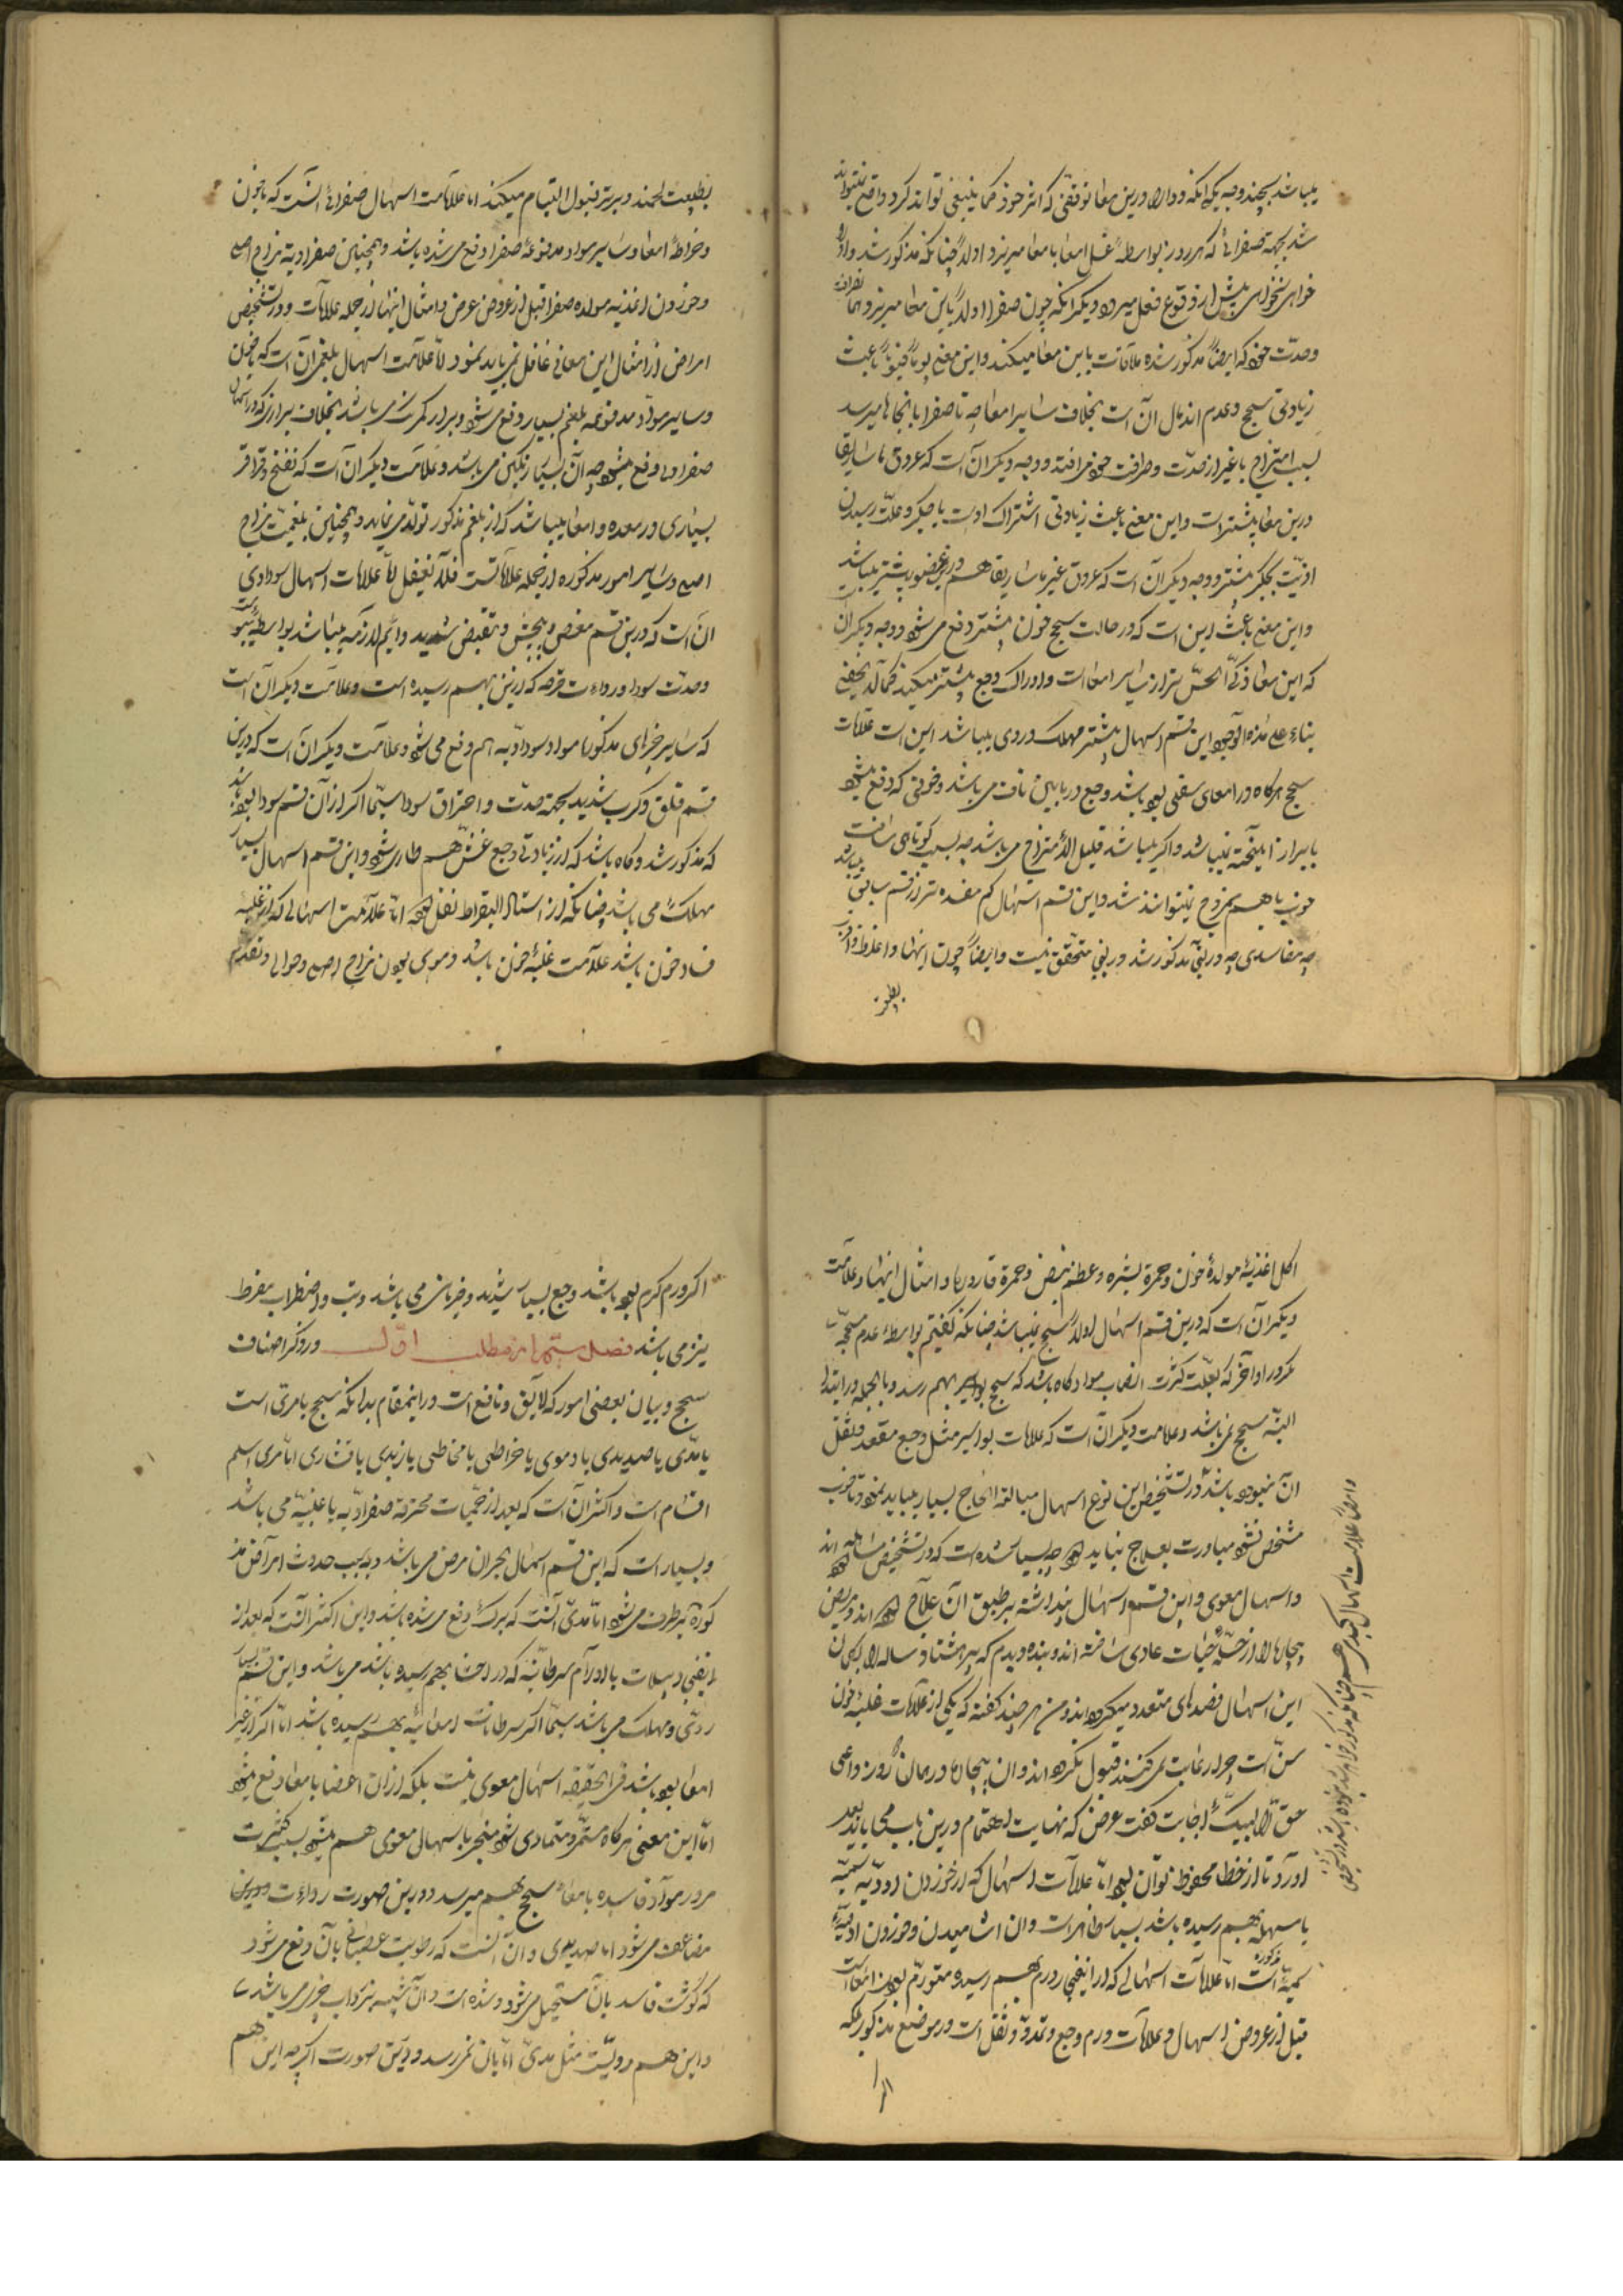 میباشد بچند وجه یکی آنکه دوا را درین معا توقفی که اثر خود کما ینبغی تواند کرد واقع نمیتواند
شد بجهة صفرائی که هر روز بواسطهٔ غسل امعا بامعا میریزد اولاً چنانکه مذکور شد و او را
خواهی نخواهی پیش از وقوع فعل میبرد و دیگر آنکه چون صفرا اولاً باین معا میریزد
وحدّت خود که ایضاً مذکور شده ملاقات باین معا میکند و این معنی یوماً فیوماً باعث
زیادتی سحج و عدم اندمال آن است بخلاف سایر امعا چه تا صفرا بآنجاها میرسد
بسبب امتزاج با غیر از حدّت و صرافت خود می‌افتد و وجه دیگر آن است که عروق ماساریقا
درین معا بیشتر است و این معنی باعث زیادتی اشتراک اوست با جگر و علّت رسیدن
اذیّت بجگر بیشتر و وجه دیگر آن است که عروق غیر ماساریقا هم درین عضو بیشتر میباشد
و این معنی باعث این است که در حالت سحج خون بیشتر دفع می‌شود و وجه دیگر آن
که این معا ذکیّ الحسّ‌تر از سایر امعا است و ادراک وجع بیشتر میکند کما لا یخفی
بناء علی هذه الوجوه این قسم اسهال بیشتر مهلک و ردی میباشد این است علامات
سحج هرگاه در امعای سفلی بوده باشد وجع در پایین ناف می‌باشد و خونی که دفع میشود
با براز آمیخته نمیباشد و اگر میباشد قلیل الامتزاج می‌باشد چه بسبب کوتاهی مسافت
خوب با هم ممزوج نمیتوانند شد و این قسم اسهال کم مفسده‌تر از قسم سابق میباشد
چه مفاسدی چه در بقیه مذکور شد درینی متحقق نیست و ایضاً چون اینها اغلظ و اقرب
بطبیعت لحمند و بیشتر قبول التیام میکنند اما علامت اسهال صفرائی آنست که با خون
و خراطهٔ امعا و سایر مواد مدفوعه صفرا دفع می‌شده باشد و همچنین صفراویة مزاج اصلی
و خوردن اغذیه مولده صفرا قبل از عروض مرض و امثال اینها از جمله علامات و در تشخیص
امراض از امثال این معانی غافل نمی‌باید بود امّا علامت اسهال بلغمی آن است که با خون
و سایر موادّ مدفوعه بلغم بسیار دفع می‌شود و براز کم رنگ می‌باشد بخلاف برازی که در اسهال
صفراوی دفع میشود چه آن بسیار رنگین می‌باشد و علامت دیگر آن است که نفخ و قراقر
بسیاری در معده و امعا میباشد که از بلغم مذکور تولّد می‌نماید و همچنین بلغمیّت مزاج
اصلی و سایر امور مذکوره از جمله علاماتست فلا تغفل امّا علامات اسهال سوداوی
آن است که درین قسم مغص و پیچش و تقبض شدید دایم لازمه میباشد بواسطهٔ یبوست
و حدّت سودا و رداءت قرحه که ازین بهم رسیده است و علامت دیگر آن است
که سایر چیزهای مذکور با مواد سوداویّه هم دفع می‌شود و علامت دیگر آن است که درین
قسم قلق و کرب شدید بجهة حدّت و احتراق سودا سیّما اگر از آن قسم سودا بوده باشد
که مذکور شد و گاه باشد که از زیادتی وجع غش هم طاری شود و این قسم اسهال بسیار
مهلک می باشد چنانکه از استاد البقراط نقل شده امّا علامت اسهالی که از غلبه
فساد خون باشد علامت غلبهٔ خون باشد و دموی بودن مزاج اصلی و حوالی و تقدّم
بطبیعت
اکل اغذیهٔ مولدهٔ خون و حمرة بشره و عظم نبض و حمرة قاروره و امثال اینها و علامت
دیگر آن است که درین قسم اسهال اولاً سحج نمیباشد چنانکه گفتیم بواسطهٔ عدم سحجیّت
مگر در اواخر که بعلّت کثرت انصباب مواد گاه باشد که سحج بهم رسد و بالجمله در ابتدا
البتّه سحج نمی‌باشد و علامت دیگر آن است که علامات بواسیر مثل وجع مقعد و ثقل
آن نبوده باشد و در تشخیص این نوع اسهال مبالغه الحاح بسیار میباید نمود تا خوب
مشخص نشود مبادرت بعلاج نباید نمود چه بسیار شده است که در تشخیص مساهله نموده‌اند
و اسهال معوی و این قسم اسهال پنداشته بر طبق آن علاج نموده‌اند و مریض
بیچاره را از حلیهٔ حیات عاری ساخته‌اند و بنده دیدم که پیر هشتاد ساله را بگمان
این اسهال فصدهای متعدد میکرده‌اند و من هر چند گفتم که یکی از علامات غلبهٔ خون
سنّ است چرا رعایت نمی‌کنند قبول نکرده‌اند و آن بیچاره در همان روز داعی
حق را لبیّک اجابت گفت غرض که نهایت اهتمام درین باب بجا باید
آورد تا از خطا محفوظ توان بود امّا علامات اسهالی که از خوردن ادویّه سمیّه
یا سهله بهم رسیده باشد بسیار ظاهر است و آن آشامیدن و خوردن ادویّهٔ
سمیّه مذکوره است امّا علامات اسهالی که از انفجار ورم بهم رسیده متورّم بودن امعا است
قبل از عروض اسهال و علامات ورم وجع و تمدّد و ثقل است در موضع مذکور بلکه
اگر
و ایضاً علامت اسهال کبدی هم چنانکه مذکور خواهد شد نبوده باشد
اگر ورم گرم بوده باشد وجع بسیار شدید و ضربان می باشد و تب و اضطراب مفرط
نیز می باشد فصل ستم از مطلب اوّل در ذکر اصناف
سحج و بیان بعضی امور که لایق و نافع است در اینمقام بدانکه سحج یا مریّ است
یا مدّی یا صدیدی یا دموی یا خراطی یا مخاطی یا زبدی یا قشاری امّا مری اسلم
اقسام است و اکثر آن است که بعد از حمّیات محترقه صفراویّه یا غلبیّه می باشد
و بسیار است که این قسم اسهال بحران مرض می‌باشد و بسبب حدوث امراض مذ
کوره برطرف می‌شود امّا مدّی آنست که برک دفع می‌شده باشد و این اکثر آنست که بعد از
انفجار دبیلات یا اورام سرطانیه که در احشا بهم رسیده باشد می‌باشد و این قسم بسیار
ردّی و مهلک می‌باشد سیّما اگر سرطانات امعائیّه بهم رسیده باشد امّا اگر از غیر
امعا بوده باشد فی الحقیقه اسهال معوی نیست بلکه از آن اعضا بامعا دفع میشود
امّا این معنی هرگاه مستمرّ و متمادی شود منجر باسهال معوی هم میشود بسبب کثرت
مرور موادّ فاسده بامعاء سحج بهم میرسد و درین صورت رداءت
مضاعف می‌شود امّا صدیدی و آن آنست که رطوبت غسالی بآن دفع می‌شود
که گوشت فاسد بآن مستحیل می‌شود و شده است و آن شبیه بزرداب چیزی می باشد
و این هم ردیّست مثل مدّی امّا بآن نمی‌رسد و درین صورت اگر چه این هم